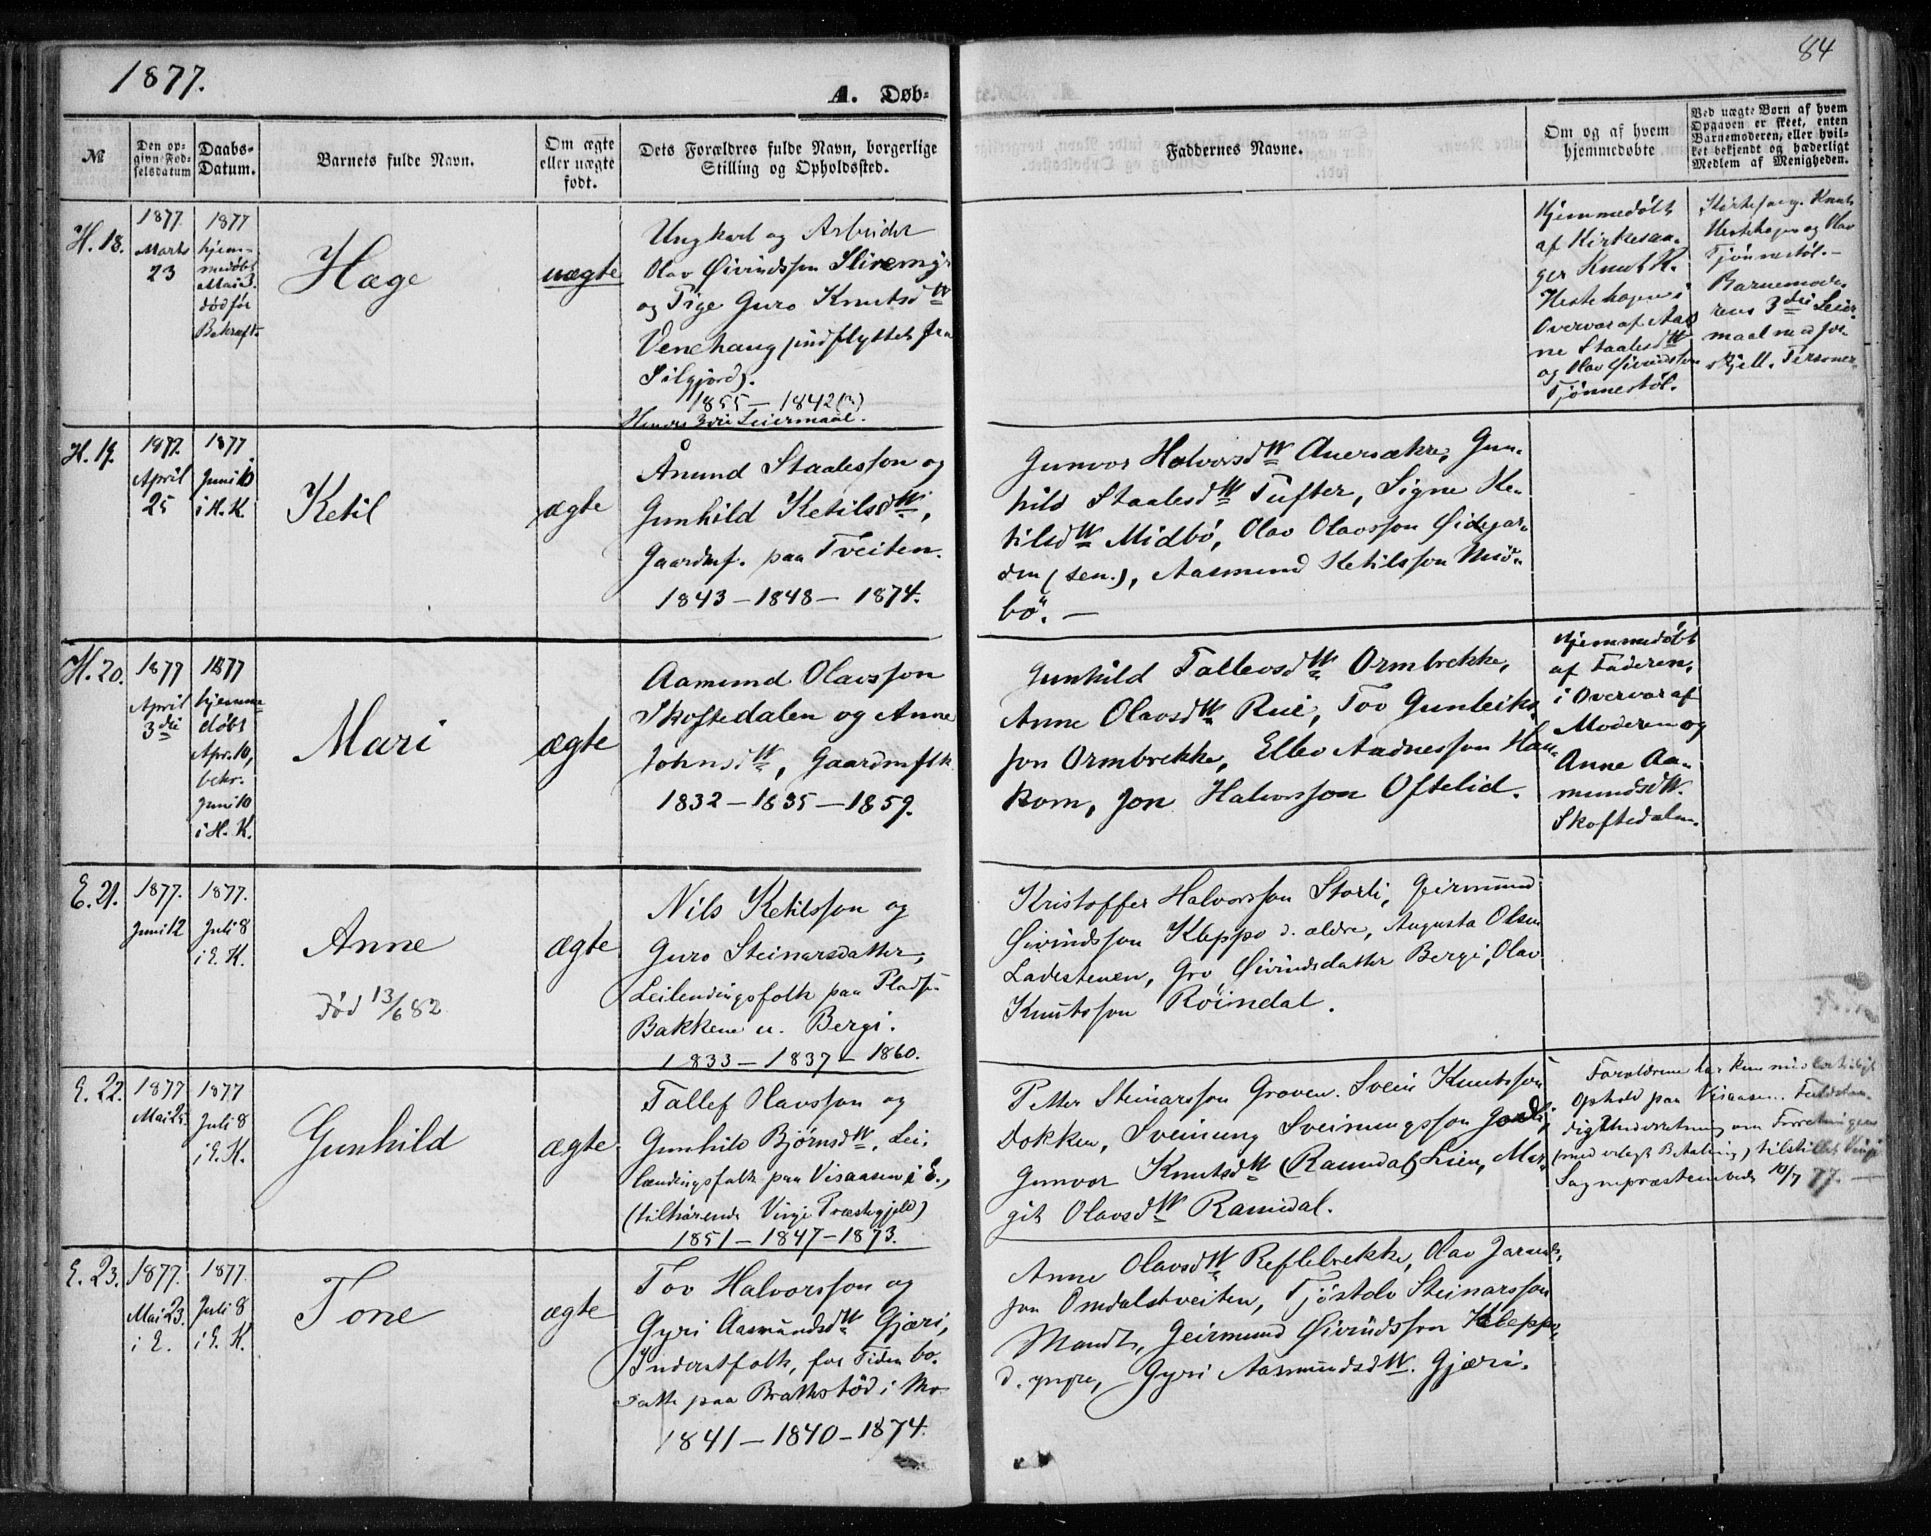 1877.
84
A. Døb-
№
Den op-
givne Fød-
selsdatum
Daabs-
Datum.
Barnets fulde Navn.
Om ægte
eller uægte
født.
Dets Forældres fulde Navn, borgerlige
Stilling og Opholdssted.
Faddernes Navne.
Om og af hvem
hjemmedøbte
Ved uægte Børn af hvem
Opgaven er skeet, enten
Barnemoderen, eller hvil-
ket bekjendt og hæderligt
Medlem af Menigheden.
H. 18.
1877
Marts
23
1877
hjem-
medøbt
Mai 3.
død før
Bekræft.
Hæge
uægte
Ungkarl og Arbeider
Olav Øivindsson
og Pige Guro Knutsdtt
Venehaug (indflyttet fra
Silgjord).
1855 — 1842
Hendes 3die Leiermaal.
Hjemmedøbt
af Kirkesan-
ger Knut K.
Hestehagen i
Overvær af Aas
ne Staalesdtt
og Olav Øivindsson
Tjønnestøl.
Kirkesang. Knut
Hestehagen og Olav
Tjønnestøl.—
Barnemode-
rens 3die Leier-
maal m. a for-
skjell. Personer.
H. 19.
1877.
April
25
1877
Juni 10
i H. K.
Ketil
ægte
Ånund Staalesson og
Gunhild Ketilsdtt,
Gaardmf. paa Tveiten.
1843 — 1848 — 1874.
Gunvor Halvorsdtt Auersækre, Gun-
hild Staalesdtt Tufter, Signe Ke-
tilsdtt Midbö, Olav Olavsson Øidegar-
den (sen.), Aasmund Ketilsson Mid-
bö. —
H. 20.
1877
April
3die
1877
hjemme
døbt
Apr. 10,
bekr.
Juni 10
i H. K.
Mari
ægte
Aamund Olavsson
Skoftedalen og Anne
Johnsdtt, Gaardmflk.
1832 — 1835 — 1859.
Gunhild Tallevsdtt Ormbrekke,
Anne Olavsdtt Rui, Tov Gunleiks-
son Ormbrekke, Ellev Aadnesson Hau-
kom, Jon Halvorsson Oftelid.
Hjemmedøbt
af Faderen,
i Overvær af
Moderen og
Anne Aa-
mundsdtt.
Skoftedalen.
E. 21.
1877.
Juni 12
1877.
Juli 8
i E. K.
Anne
Død 13/6 82
ægte
Nils Ketilsson og
Guro Steinarsdatter,
Leilendingsfolk paa Pladsen
Bakkene u. Bergi.
1833 — 1837 — 1860.
Kristoffer Halvorsson Storli, Geirmund
Øivindsson Kleppo d. ældre, Augusta Olsen
Ladestenen, Gro Øivindsdatter Bergi, Olav
Knutsson Röindal.
E. 22.
1877
Mai 25.
1877
Juli 8
i E. K.
Gunhild
ægte
Tallef Olavsson og
Gunhild Bjørnsdtt. Lei-
lændingsfolk paa Visaasen i E.,
(tilhørende Vinje Præstegjeld)
1851 — 1847 — 1873.
Petter Steinarsson Groven. Svein Knutsson
Dokken, Sveinung Sveinungsson Jordli,
Gunvor Knutsdtt (Ramdal) Lien, Mar-
git Olavsdtt Ramdal.
Forældrene har kun midlertidigt
Ophold paa Visaasen. Fuldstæn-
dig Underretning om Forretningen
(med erlagt Betaling) tilstillet Vinje
Sognepræstembede 10/7 77. —
E. 23.
1877.
Mai 23.
i E.
1877
Juli 8
i E. K.
Tone
ægte
Tov Halvorsson og
Gyri Aasmundsdtt Gjæri,
Inderstfolk, for Tiden bo-
satte paa Brattestød i Mo
1841 — 1840 — 1874.
Anne Olavsdtt Reflebrekke, Olav Jarunds-
son Omdalstveiten, Tjöstolv Steinarsson
Mandt, Geirmund Øivindsson Kleppo
d. yngre, Gyri Aasmundsdtt. Gjæri.